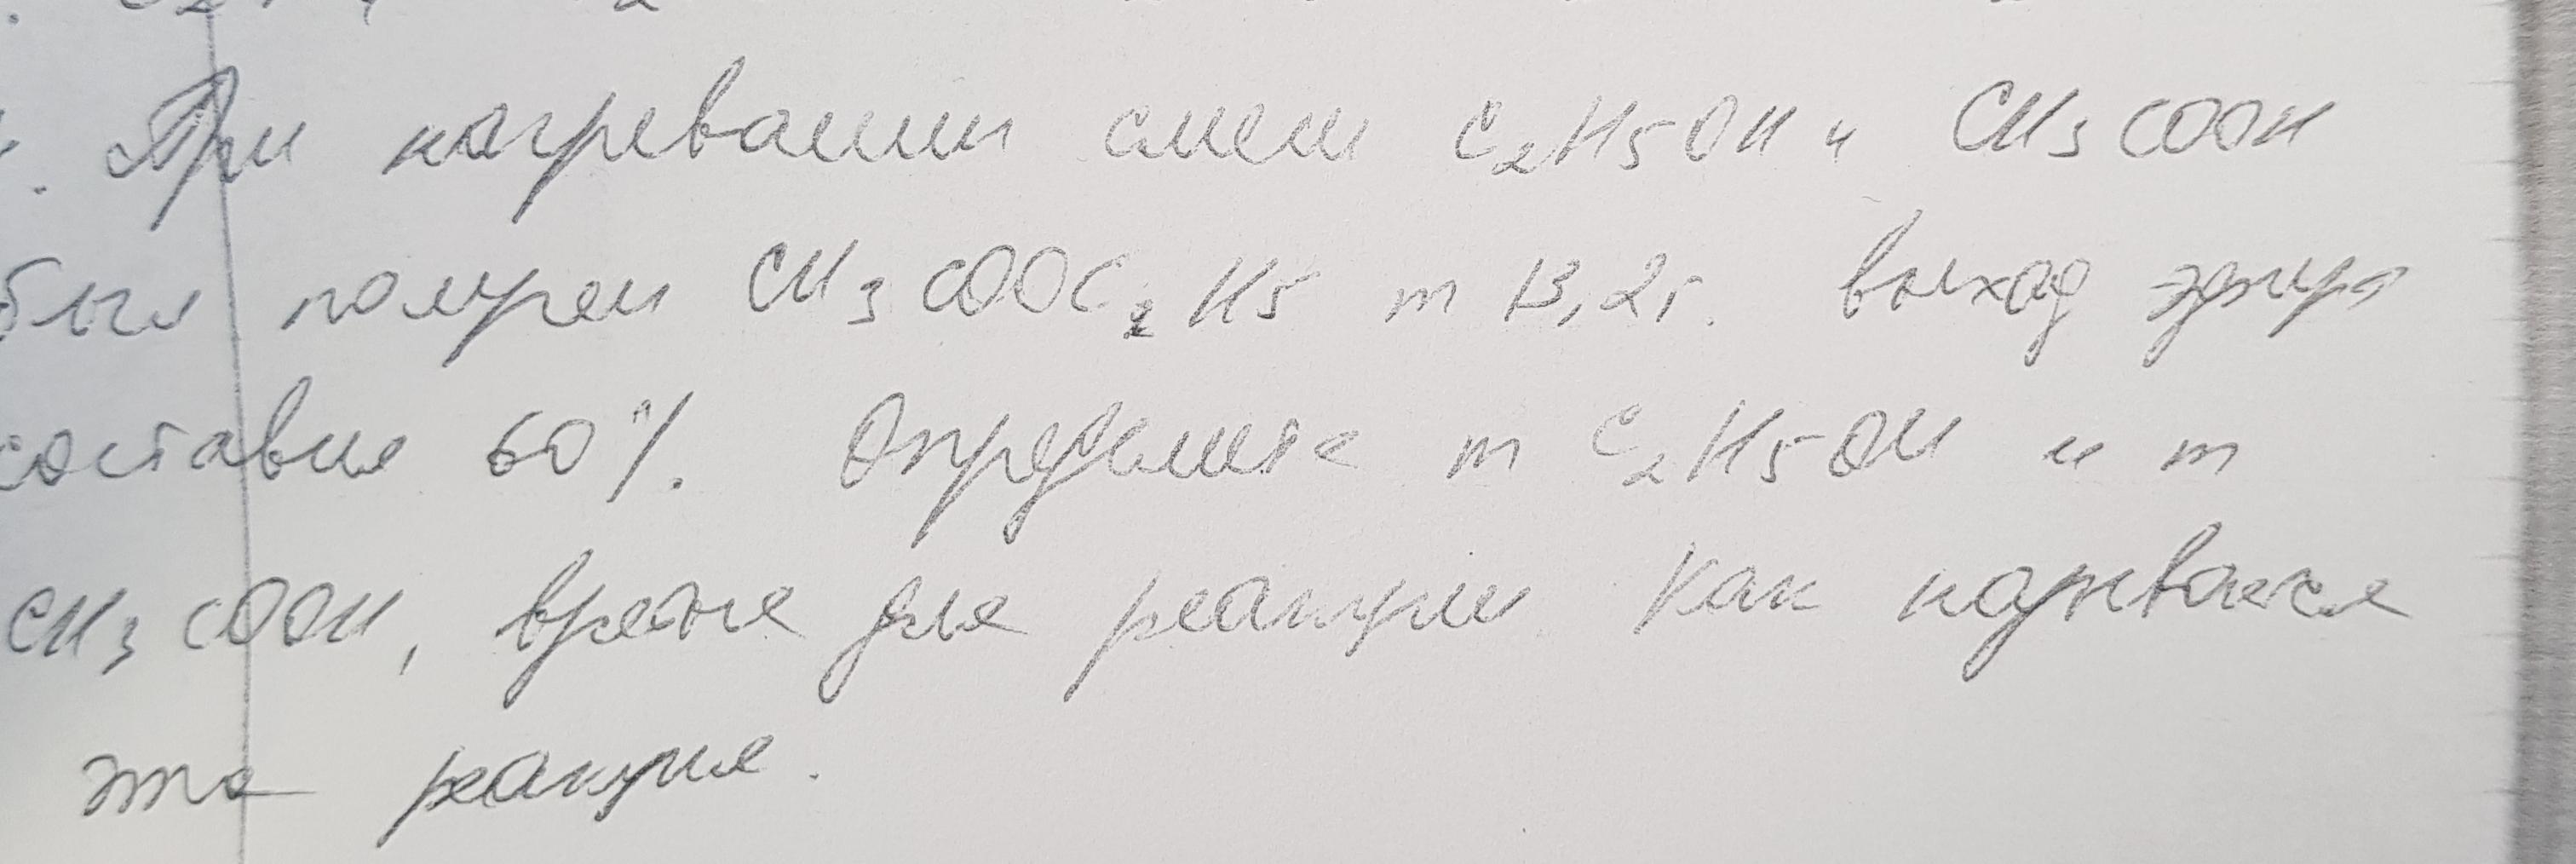 При нагревании смеси C₂H5OH и CH₃COOH
был получен CH₃COOC₂H5 m 13,2г. выход эфира
составил 60%. Определите m C₂H5OH и m
CH₃COOH, для реакции. Как называется
эта реакция.